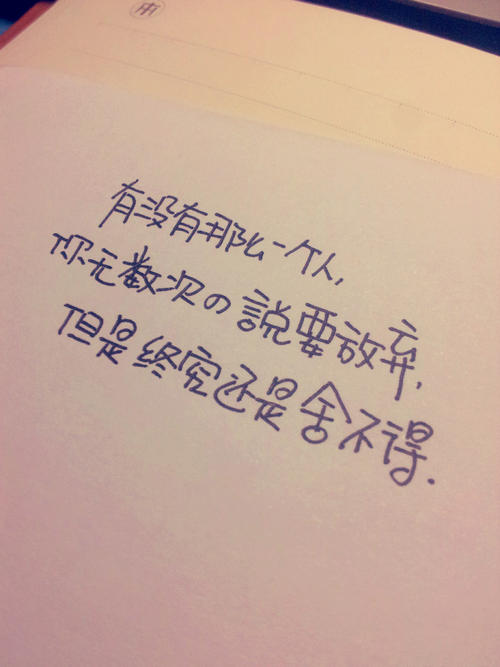 有没有那么一个人,
你无数次の説要放弃,
但是终究还是舍不得.